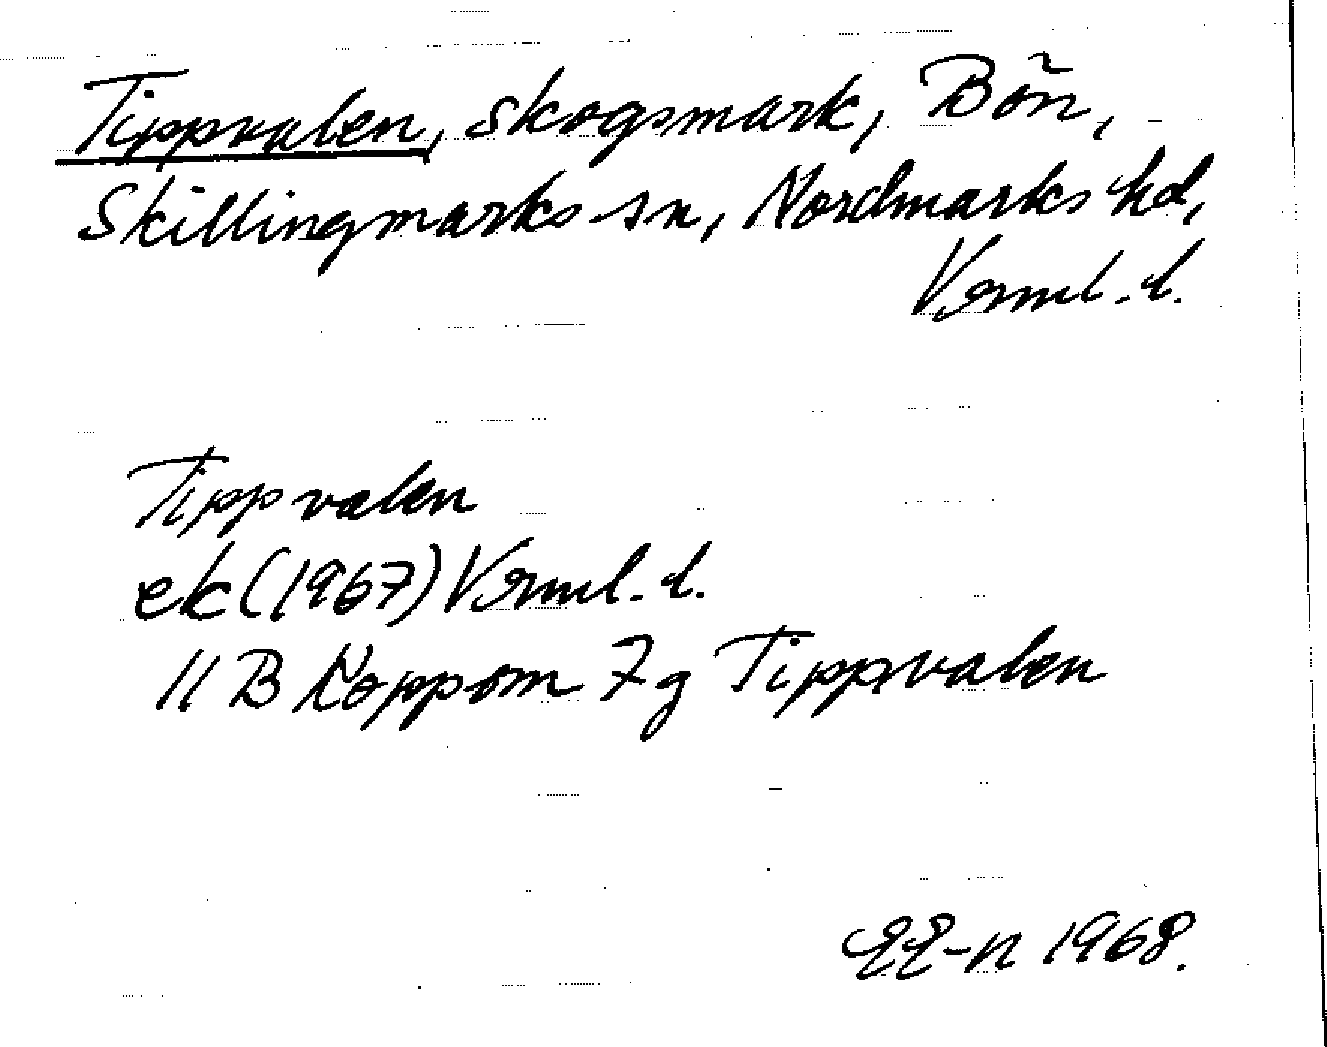 Tippvalen, skogsmark, Bön,
Skillingmarks sn, Nordmarks hd,
Värml. l.
Tippvalen
ek (1967) Värml. l.
11 B Koppom 7 g Tippvalen
EE-n 1968.